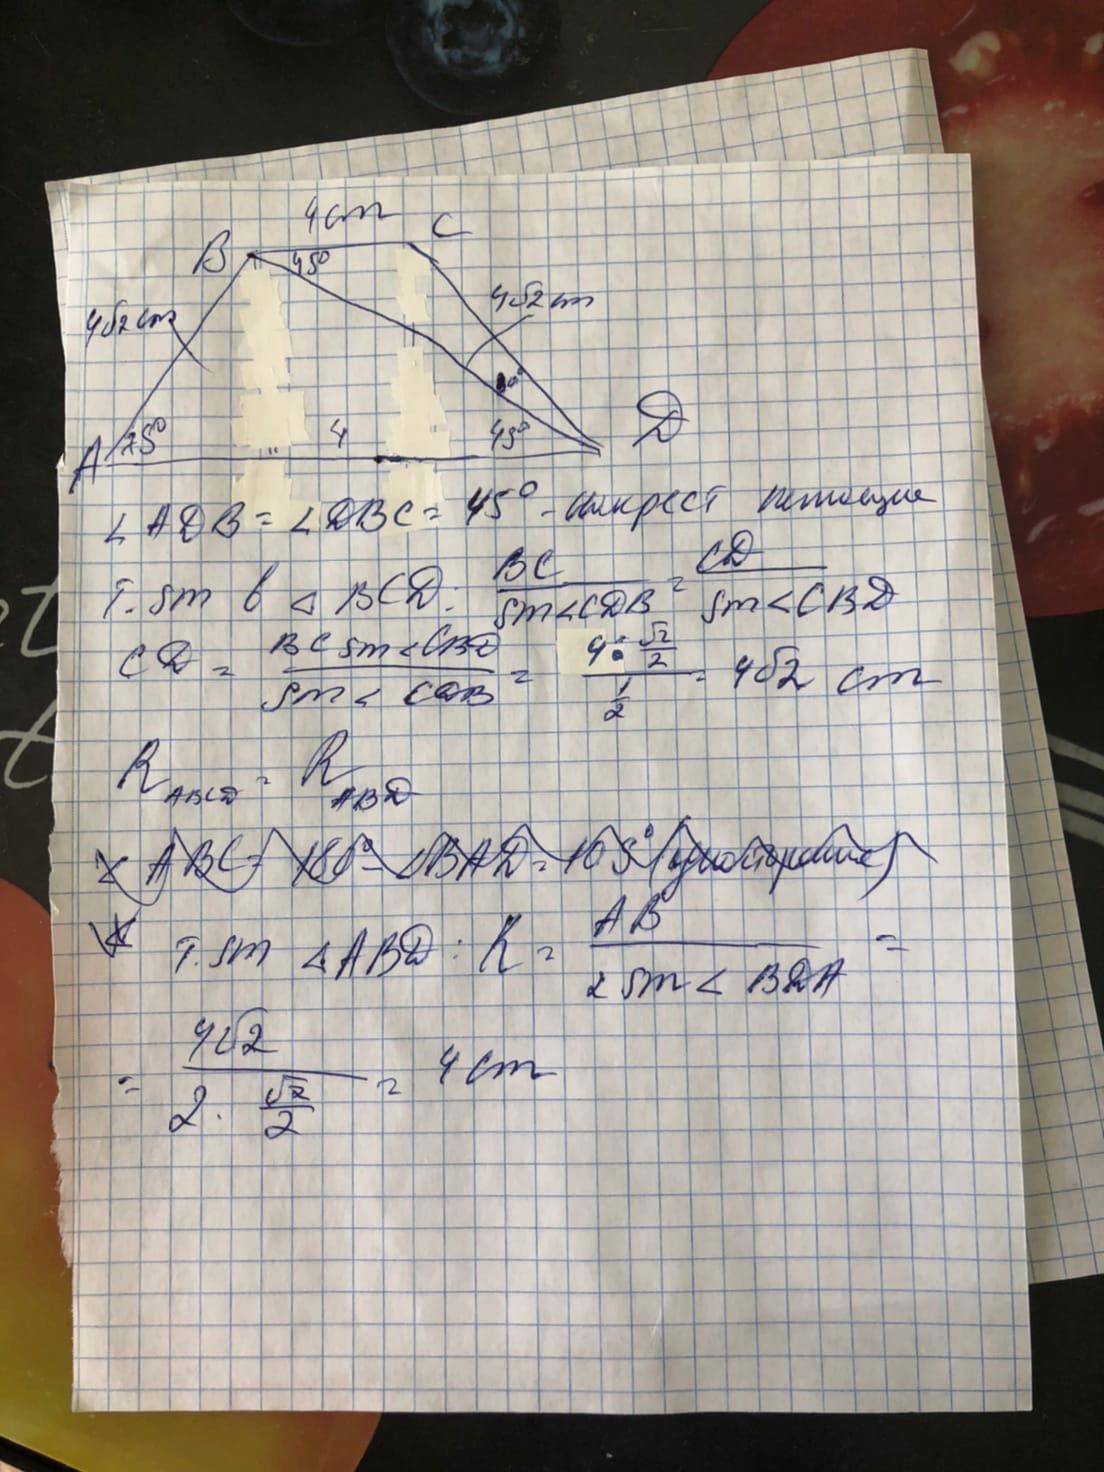 4 cm
B C
45°
4√2 cm 4√2 cm
30°
A 75° 4 45° D
∠ADB = ∠DBC = 45° - накрест лежащие
T. sin в △BCD: BC / sin∠CDB = CD / sin∠CBD
CD = BC sin∠CBD / sin∠CDB = 4 · √2/2 / 1/2 = 4√2 cm
R ABCD = R ABD
∠ABC = 180° - ∠BAD = 105° (односторонние)
T. sin △ABD: R = AB / 2 sin∠BDA =
= 4√2 / 2 · √2/2 = 4 cm